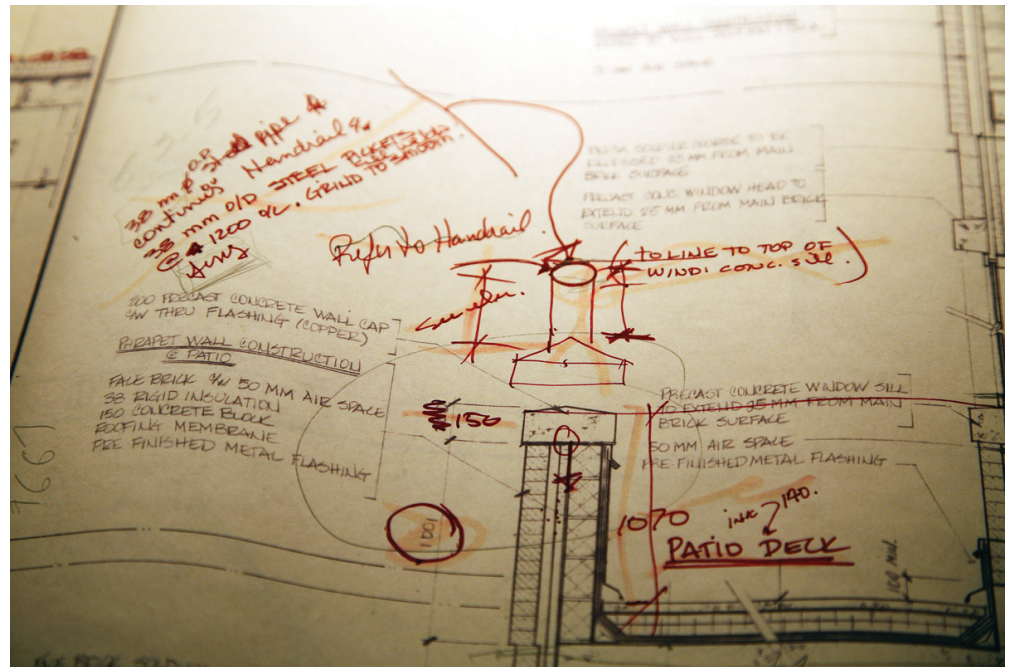 AIR SPACE
38 mm
pipe
continuous Handrail
38 mm O/D STEEL PICKETS
@ 1200 o/c. GRIND TO SMOOTH.
FINISH SOLDIER COURSE TO BE
25 MM FROM MAIN
BRICK SURFACE
PRECAST CONC. WINDOW HEAD TO
EXTEND 25 MM FROM MAIN BRICK
SURFACE
Refer to Handrail.
TO LINE TO TOP OF
CONC. SILL.
200 PRECAST CONCRETE WALL CAP
C/W THRU FLASHING (COPPER)
PARAPET WALL CONSTRUCTION
@ PATIO
FACE BRICK C/W 50 MM AIR SPACE
38 RIGID INSULATION
150 CONCRETE BLOCK
ROOFING MEMBRANE
PRE FINISHED METAL FLASHING
150
PRECAST CONCRETE WINDOW SILL
TO EXTEND 25 MM FROM MAIN
BRICK SURFACE
50 MM AIR SPACE
PRE-FINISHED METAL FLASHING
1070
140.
PATIO DECK
1001
100 min.